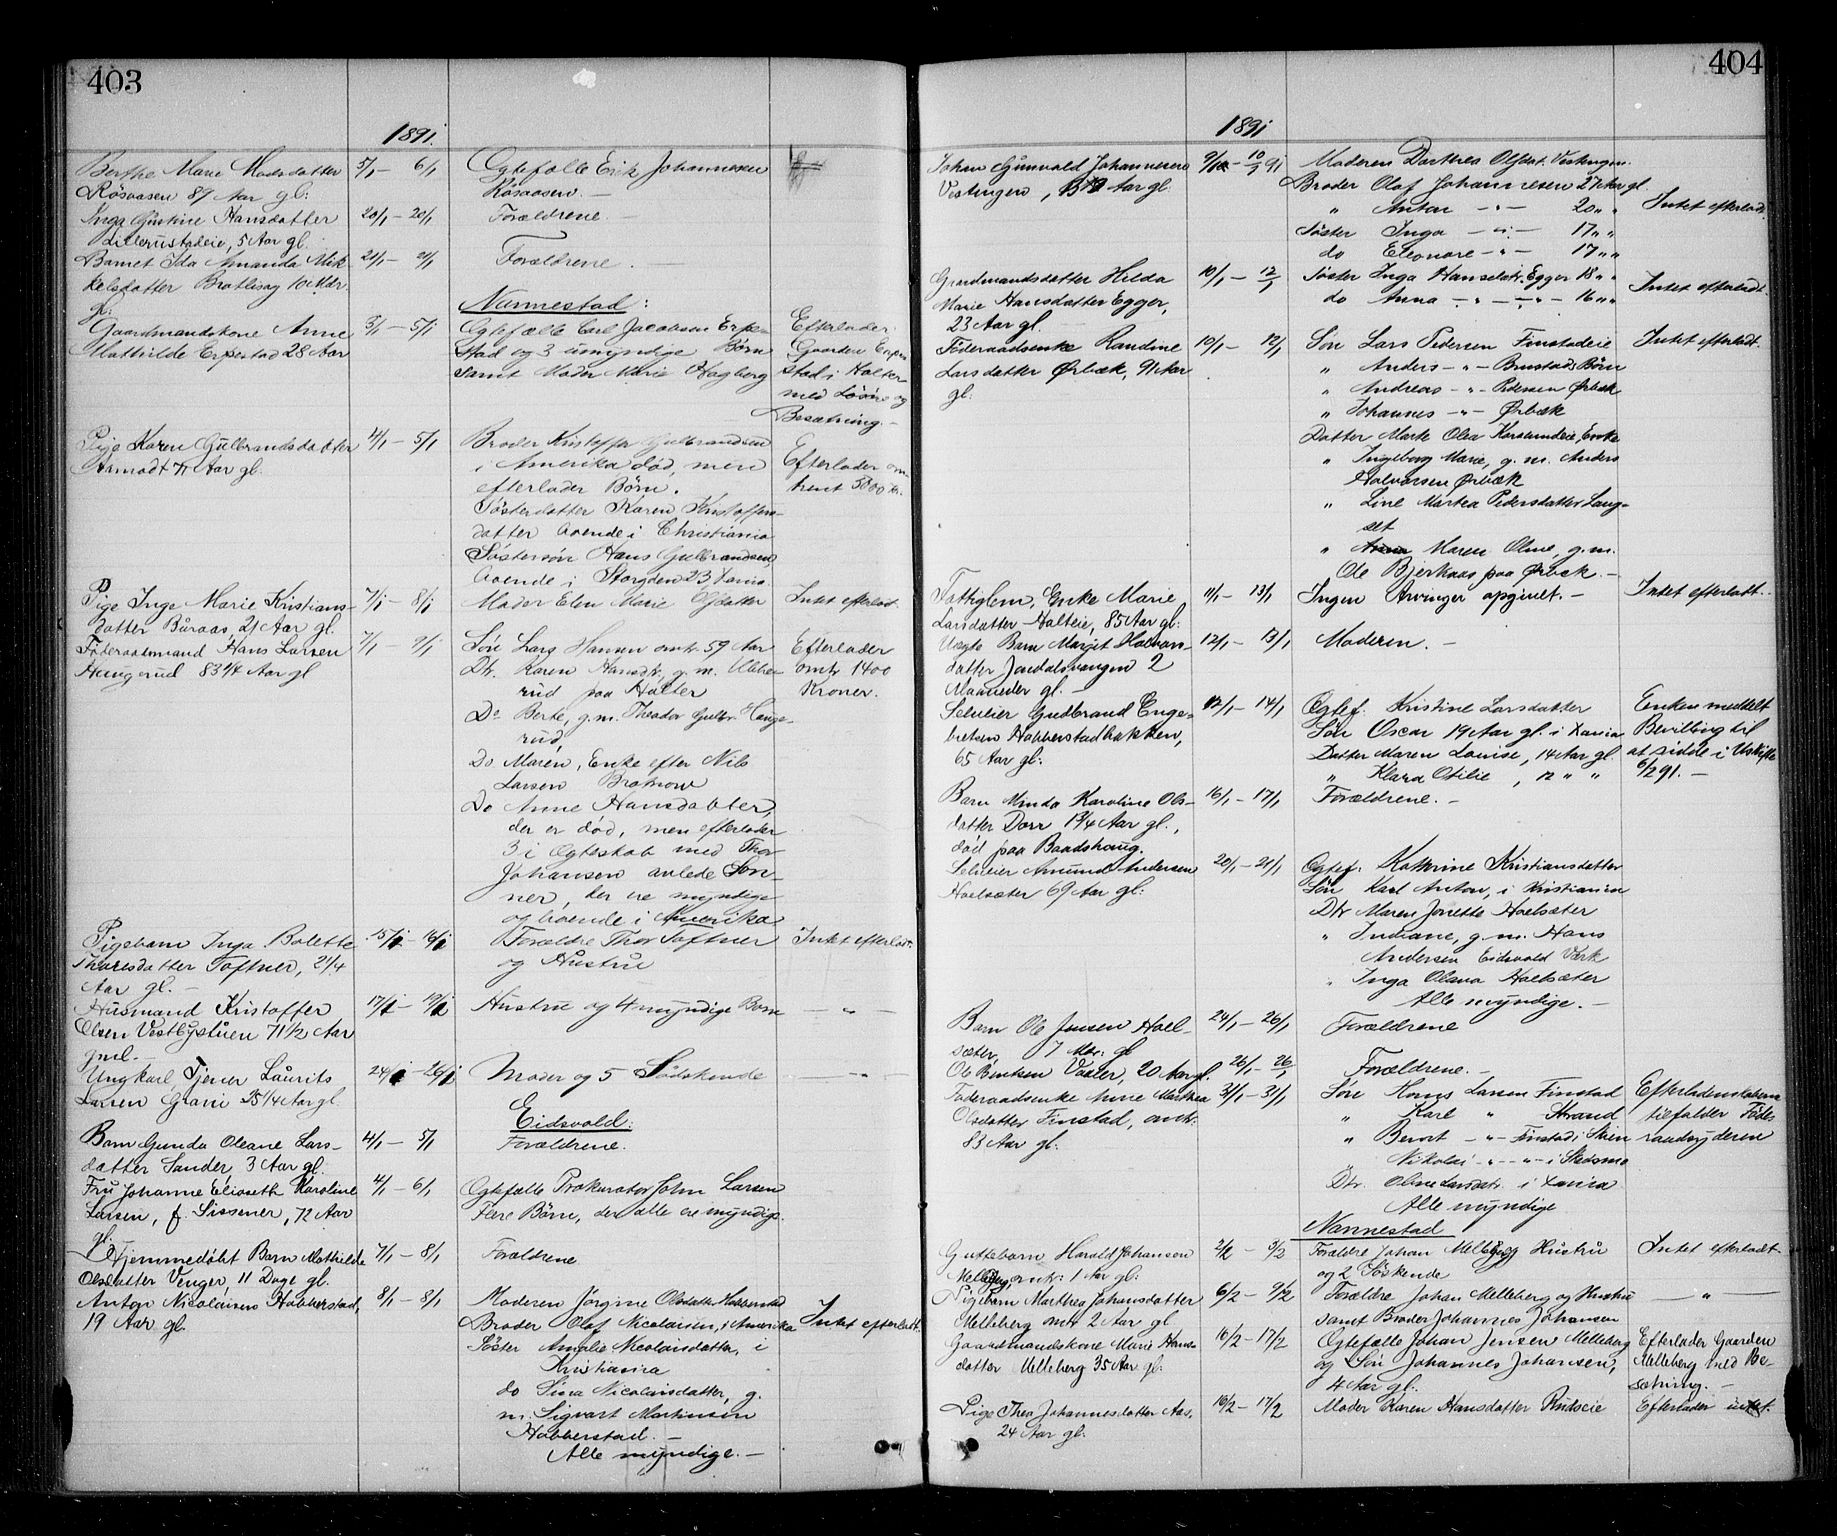 403
1891.
Berthe Marie Madsdatter 5/1 — 6/1 Ægtefælle Erik Johannesen
Røsaasen 87 Aar gl: Røsaasen. —
Inga Gustine Hansdatter 20/1 — 20/1 Forældrene. —
Lillerustadeie, 5 Aar gl.
Barnet Ida Amanda Mik- 21/1 — 21/1 Forældrene. —
kelsdatter Bratlisag 10 Mdr
gl:
Nannestad:
Gaardmandskone Anne 3/1 — 5/1 Ægtefælle Carl Jacobsen Erpe- Efterlader
Mathilde Erpestad 28 Aar stad og 3 umyndige Børn Gaarden Erpe-
samt Moder Marie Hagberg stad i Holter
med Løsøre og
Besætning. —
Pige Karen Gulbrandsdatter 4/1 — 5/1 Broder Kristoffer Gulbrandsen
71 Aar gl. i Amerika død, men Efterlader om-
efterlader Børn. trent 5000 kr.
Søsterdatter Karen Kristoffers-
datter boende i Christiania
Søstersøn Hans Gulbrandsen
boende i Storgden 23 Xania.
Pige Inge Marie Kristians- 7/1 — 8/1 Moder Elen Marie Olsdatter Intet efterladt.
datter Båraas, 21 Aar gl.
Føderaadsmand Hans Larsen 7/1 — 9/1 Søn Lars Hansen omtr. 59 Aar Efterlader
Haugerud 83 1/4 Aar gl Dtr. Karen Hansdtr, g. m. omtr 1400
rud paa Holter Kroner.
Do Berte, g.m. Theodor Gulbr. Hauge-
rud,
Do Maren, Enke efter Nils
Larsen Bramow
Do Anne Hansdatter,
der er død, men efterlader
3 i Ægteskab med Thor
Johansen avlede Søn-
ner, der ere myndige
og boende i Amerika
Pigebarn Inga Bolette 15/1 — 16/1 Forældre Thor Toftner Intet efterladt.
Thoresdatter Toftner, 2 1/4 og Hustru
Aar gl. —
Husmand Kristoffer 17/1 — 19/1 Hustru og 4 myndige Børn — „ —
Olsen Vestbystuen 71 1/2 Aar
gml. —
Ungkarl, Tjener Laurits 24/1 — 26/1 Moder og 5 Sødskende — „ —
Larsen Gravi 25 1/4 Aar gl.
Eidsvold:
Barn Gunda Oleane Lars- 4/1 — 5/1 Forældrene.
datter Sander, 3 Aar gl.
Fru Johanne Elisabeth Karoline 4/1 — 6/1 Ægtefælle Prokurator John Larsen
Larsen, f. Sissener, 72 Aar Flere Børn, der alle ere myndige.
gl:
Hjemmedøbt Barn Mathilde 7/1 — 8/1 Forældrene
Olsdatter Venger, 11 Dage gl.
Anton Nicolaisen Habberstad, 8/1 — 8/1 Moderen Jørgine Olsdatter Habberstad
19 Aar gl. Broder Olaf Nicolaisen, i Amerika Intet efterladt.
Søster Amalie Nicolaisdatter, i
Kristiania
do Sina Nicolaisdatter, g.
m. Sigvart Martinsen
Habberstad. —
Alle myndige. —
404
1891
Johan Gunvald Johannesen 9/1 — 10/1 91 Moderen Dorthea Olsdat. Vestengen.
Vestengen, 13 Aar gl Broder Olaf Johannesen 27 Aar gl.
„ Anton — „ — 20 „ „ Intet efterladt.
Søster Inga — „ — 17 „ „
do Eleonore — „ — 17 „ „
Gaardmandsdatter Hilda 10/1 — 12/1 Søster Inga Hansdatr. Egger 18 „ „ Intet efterladt.
Marie Hansdatter Egger, do Anna — „ — „ — 16 „ „
23 Aar gl.
Føderaadsenke Randine 10/1 — 12/1 Søn Lars Pedersen Finstadeie Intet efterladt.
Larsdatter Ørbæk, 91 Aar „ Anders — „ — Brustads Børn
gl: „ Andreas — „ — Pedersen Ørbæk
„ Johannes — „ — Ørbæk
Datter Marte Olea Karslundeie, Enke
„ Ingeborg Marie, g. m. Anders
Halvorsen Ørbæk
„ Line Martea Pedersdatter Lang-
set
„ Maren Oline, g. m.
Ole Bjerkaas paa Ørbæk. —
Fattiglem, Enke Marie 11/1 — 13/1 Ingen Arvinger opgivet. — Intet efterladt.
Larsdatter Holteie, 85 Aar gl:
Uægte Barn Margit Halvors- 12/1 — 13/1 Moderen. —
datter Jondalsvangen 2
Maaneder gl. —
Selveier Gudbrand Enge- 12/1 — 14/1 Ægtef. Kristine Larsdatter Enken meddelt
bretsen Habberstadbakken, Søn Oscar 19 Aar gl. i Xania Bevilling til
65 Aar gl: Datter Maren Lovise, 14 Aar gl. at sidde i Uskifte
„ Klara Otilie, 12 „ „ 6/2 91. —
Barn Minda Karoline Ols- 16/1 — 17/1 Forældrene. —
datter Dorr 1 3/4 Aar gl.,
død paa Baadshaug.
Selveier Amund Andersen 20/1 — 21/1 Ægtef. Kathrine Kristiansdatter
Hoelsæter 69 Aar gl: Søn Karl Anton, i Kristiania
Dtr Maren Jonette Hoelsæter
„ Indiane, g. m. Hans
Andersen Eidsvold Værk
„ Inga Olava Hoelsæter
Alle myndige. —
Barn Ole Jensen Hoel- 24/1 — 26/1 Forældrene
sæter, 7 Mdr: gl
Ole Bentsen Vaaler, 20 Aar gl. 26/1 — 26/1 Forældrene. —
Føderaadsenke Anne Marthea 31/1 — 31/1 Søn Hans Larsen Finstad Efterladenskaberne
Olsdatter Finstad, omtr: „ Karl „ Strand tilfalder Føde-
83 Aar gl: „ Berort — „ — Finstad i Skien raadsyderen
„ Nikolai — „ — „ — i Skedsmo
Dtr. Oline Larsdtr. i Xania.
Alle myndige
Nannestad
Guttebarn Harald Johansen 2/2 — 3/2 Forældre Johan Melleberg Hustru Intet efterladt.
Melleberg omtr: 1 Aar gl: og 2 Søskende
Pigebarn Marthea Johansdatter 6/2 — 9/2 Forældre Johan Melleberg og Hustru — „ —
Melleberg omtr 2 Aar gl samt Broder Johannes Johansen
Gaardmandskone Marie Hans- 16/2 — 17/2 Ægtefælle Johan Jensen Melleberg Efterlader Gaarden
datter Melleberg 35 Aar gl: og Søn Johannes Johansen, Melleberg med Be-
4 Aar gl. sætning. —
Pige Thea Johannesdatter Aas, 16/2 — 17/2 Moder Karen Hansdatter Rudseie Efterlader intet.
24 Aar gl: